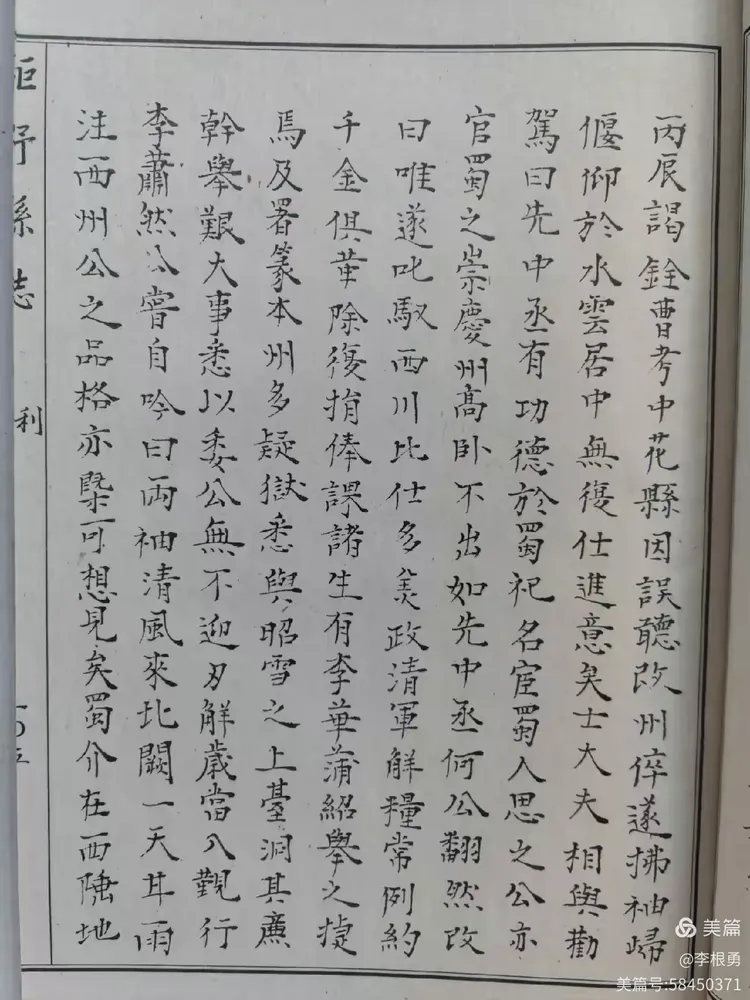 丙辰謁銓曹考中花縣因誤聽改州倅遂拂袖歸
偃仰於水雲居中無復仕進意矣士大夫相與勸
駕曰先中丞有功德於蜀祀名宦蜀人思之公亦
官蜀之崇慶州高卧不出如先中丞何公翻然改
曰唯遂叱馭西川比仕多羙政清軍解糧常例約
千金俱革除復捐俸課諸生有李華蒲紹舉之捷
焉及署篆本州多疑獄悉與昭雪之上臺洞其廉
幹舉艱大事悉以委公無不迎刃解歲當入覲行
李蕭然公嘗自吟曰兩袖清風來北闕一天甘雨
注西州公之品格亦槩可想見矣蜀介在西陲地
鉅野縣志
利
一〇五
美篇
@李根勇
美篇号:58450371